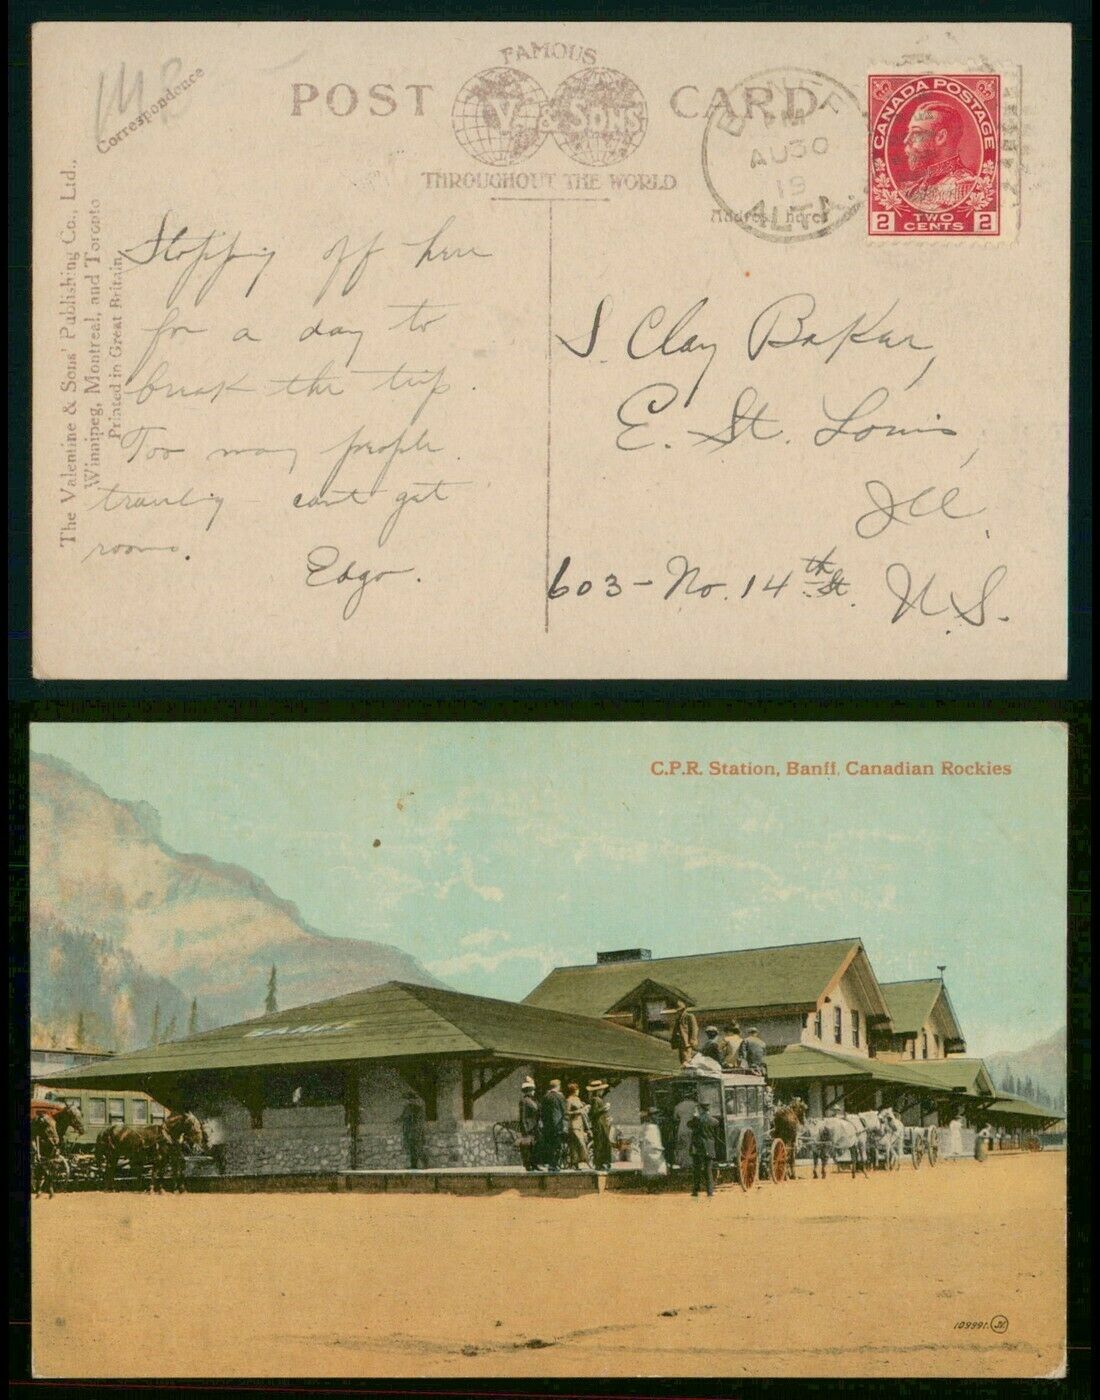 Correspondence
POST CARD
FAMOUS
V. & SONS
THROUGHOUT THE WORLD
BANFF
AU 30
19
ALTA
Address here
CANADA POSTAGE
2 TWO CENTS 2
The Valentine & Sons' Publishing Co., Ltd.,
Winnipeg, Montreal, and Toronto
Printed in Great Britain
Stopping off here
for a day to
break the trip.
Too many people
traveling - cant get
rooms.
S. Clay Baker,
E. St. Louis,
Ill.
603 - No. 14th St. U.S.
C.P.R. Station, Banff, Canadian Rockies
BANFF
109991. JV